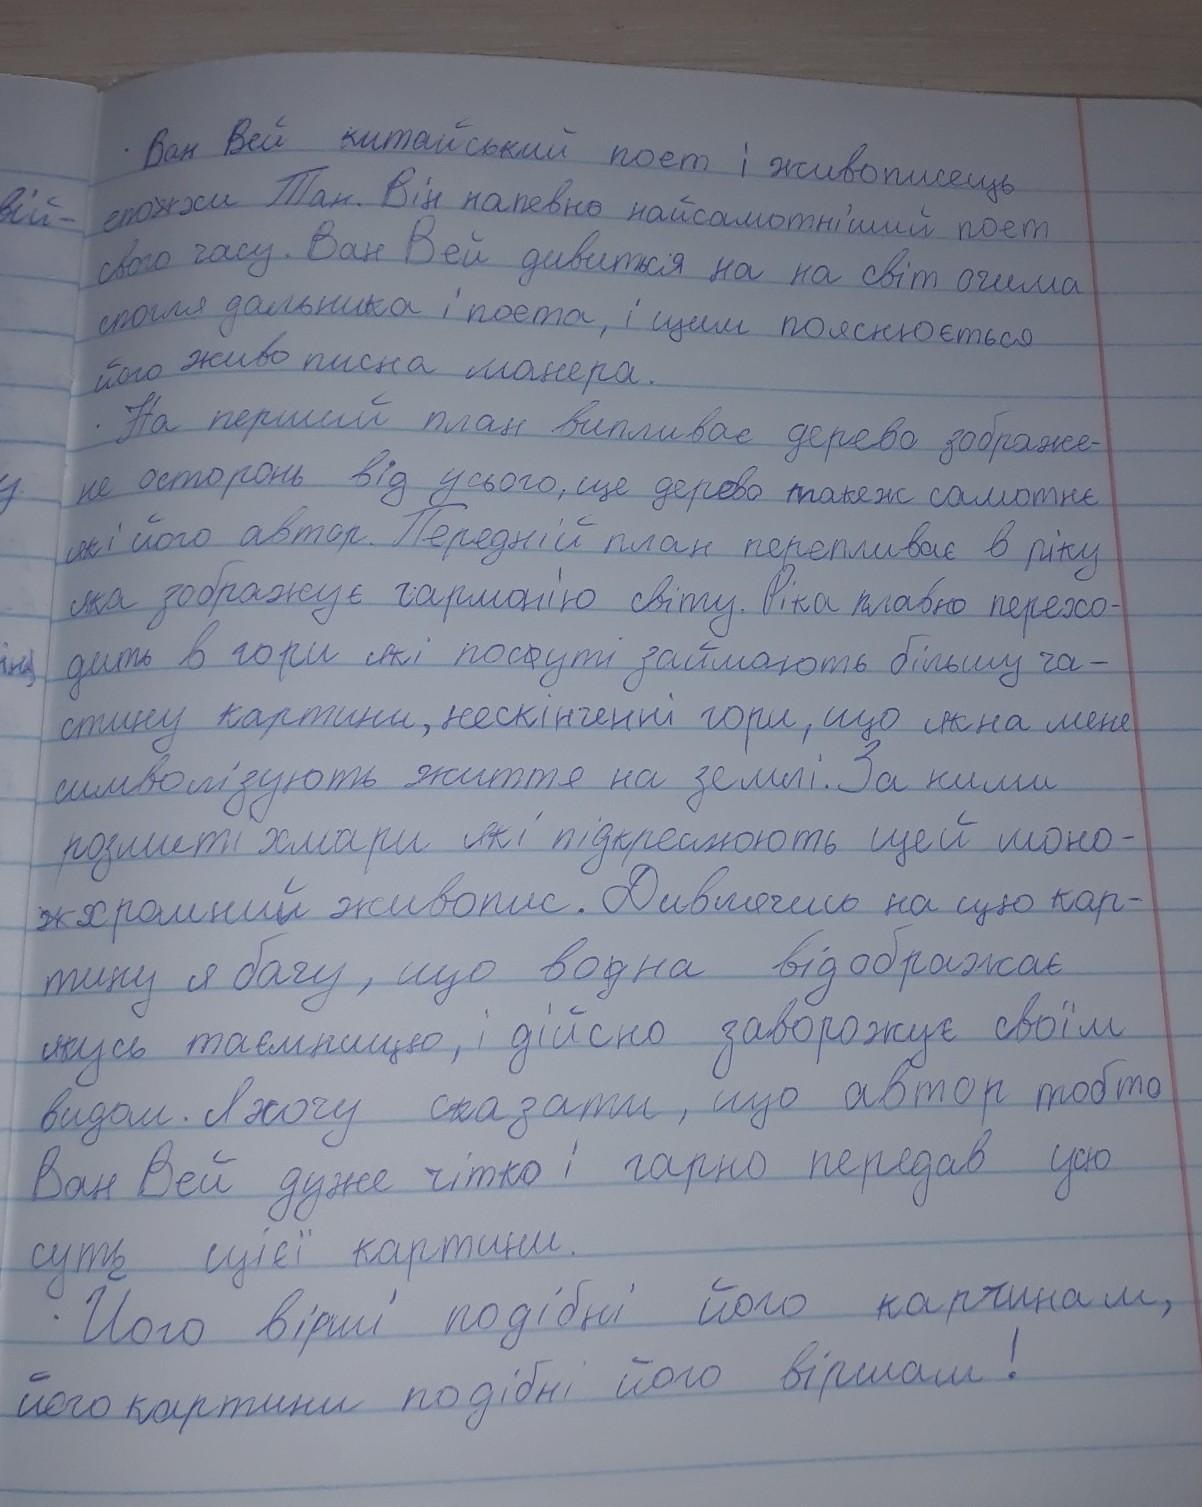 · Ван Вей китайський поет і живописець
епохжи Тан. Він напевно найсамотніший поет
свого часу. Ван Вей дивиться на на світ очима
спогля дальника і поета, і цим пояснюється
його живо писна манера.
· На перший план випливає дерево зображе-
не осторонь від усього, це дерево такеж самотнє
які його автор. Передній план перепливає в ріку
яка зображує гармонію світу. Ріка плавно перехо-
дить в гори які посуті займають більшу ча-
стину картини, нескінченні гори, що якна мене
символізують життя на землі. За ними
розлиті хмари які підкреслюють цей моно-
жхромний живопис. Дивлячись на цю кар-
тину я бачу, що вона відображає
якусь таємницю, і дійсно заворожує своїм
видом. Я хочу сказати, що автор тобто
Ван Вей дуже чітко і гарно передав усю
суть цієї картини.
· Його вірші подібні його картинам,
його картини подібні його віршам!
вій-
у